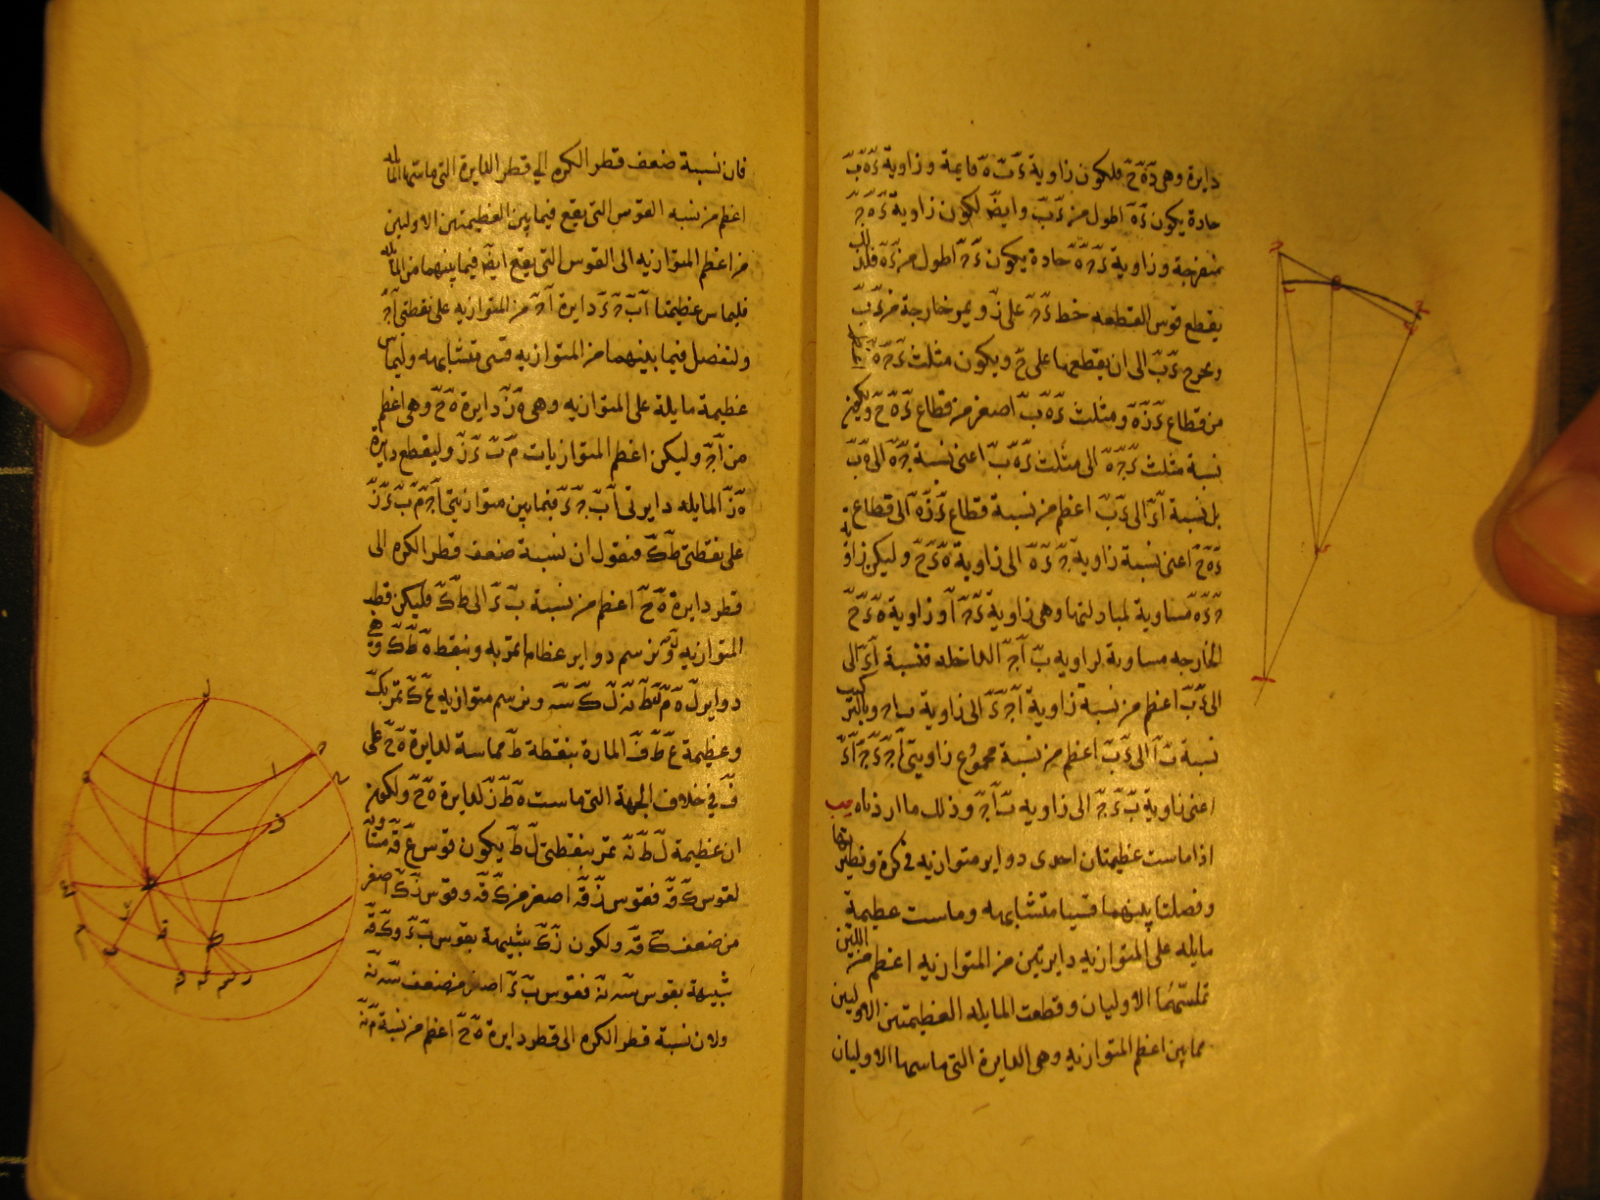 دايرة وهى دَ هَ حَ فلكون زاوية ءَ بَ هَ قايمة وزاوية ءَ هَ بَ
حادة يكون ءَ هَ اطول من ءَ بَ وايضً لكون زاوية ءَ هَ جَ
منفرجة وزاوية ءَ جَ هَ حادة يكون ءَ جَ اطول من ءَ هَ
يقطع قوس القطعه خط ءَ جَ على زَ ويمر خارجة من ءَ بَ
ونخرج ءَ بَ الى ان يقطعها على حَ ويكون مثلث ءَ جَ هَ
من قطاع ءَ زَ هَ ومثلث ءَ هَ بَ اصغر من قطاع ءَ هَ حَ ويكون
نسبة مثلث ءَ جَ هَ الى مثلث ءَ هَ بَ اعنى نسبة جَ هَ الى هَ بَ
بل نسبة آ ءَ الى ءَ بَ اعظم من نسبة قطاع ءَ زَ هَ الى قطاع
ءَ هَ حَ اعنى نسبة زاوية جَ ءَ هَ الى زاوية هَ ءَ حَ وليكن زاوية
جَ ءَ هَ مساوية لمبادلتها وهى زاوية ءَ جَ آ وزاوية هَ ءَ حَ
الخارجه مساوية لزاويه بَ آ جَ الداخله فنسبة آ ءَ الى
الى ءَ بَ اعظم من نسبة زاوية آ جَ ءَ الى زاوية ب ا جَ وبالتركيب
نسبة بَ آ الى ءَ بَ اعظم من نسبة مجموع زاويتى آ جَ ءَ جَ آ ءَ
اعنى زاوية بَ ءَ جَ الى زاوية بَ آ جَ وذلك ما اردناه يب
اذا ماست عظيمتان احدى دواير متوازيه فى كرة ونظيرتها
وفصلتا بينهما قسيا متشابهه وماست عظيمة
مايله على المتوازيه دايرتين من المتوازيه اعظم من اللتين
تماستهما الاوليان وقطعت المايله العظيمتين الاوليين
مما بين اعظم المتوازيه وهى الدايرة التى ماسها الاوليان
فان نسبة ضعف قطر الكره الى قطر الدايرة التى ماستها المايله
اعظم من نسبه القوس التى يقع فيما بين العظيمتين الاوليين
من اعظم المتوازيه الى القوس التى يقع ايضً فيما بينهما من المايله
فليماس عظيمتا آ بَ جَ ءَ دايرة آ جَ من المتوازيه على نقطتى آ جَ
ولتفصل فيما بينهما من المتوازيه قسى متشابهه وليماس
عظيمة مايلة على المتوازيه وهى هَ زَ دايرة هَ حَ وهى اعظم
من آ جَ وليكن اعظم المتوازيات مَ بَ ءَ نَ وليقطع دايرة
هَ زَ المايله دايرتى آ بَ جَ ءَ فيما بين متوازيتى آ جَ مَ بَ ءَ نَ
على نقطتى طَ كَ فنقول ان نسبة ضعف قطر الكره الى
قطر دايرة هَ حَ اعظم من نسبة بَ ءَ الى طَ كَ فليكن قطب
المتوازيه لَ ونرسم دواير عظاما تمر به وبنقط هَ طَ كَ وهى
دواير لَ هَ مَ لَ طَ نَ لَ كَ سَ ونرسم متوازيه عَ كَ تمر بكَ
وعظيمة عَ طَ فَ المارة بنقطة طَ مماسة لدايرة هَ حَ على
فَ فى خلاف الجهة التى ماست هَ طَ زَ لدايرة هَ حَ ولكون
ان عظيمة لَ طَ نَ تمر بنقطتى لَ طَ يكون قوس عَ قَ مساويه
لقوس كَ قَ فقوس زَ قَ اصغر من كَ قَ وقوس زَ كَ اصغر
من ضعف كَ قَ ولكون زَ كَ شبيهة بقوس بَ ءَ وكَ قَ
شبيهة بقوس سَ نَ فقوس بَ ءَ اصغر من ضعف سَ نَ
ولان نسبة قطر الكره الى قطر دايرة هَ حَ اعظم من نسبة مَ نَ